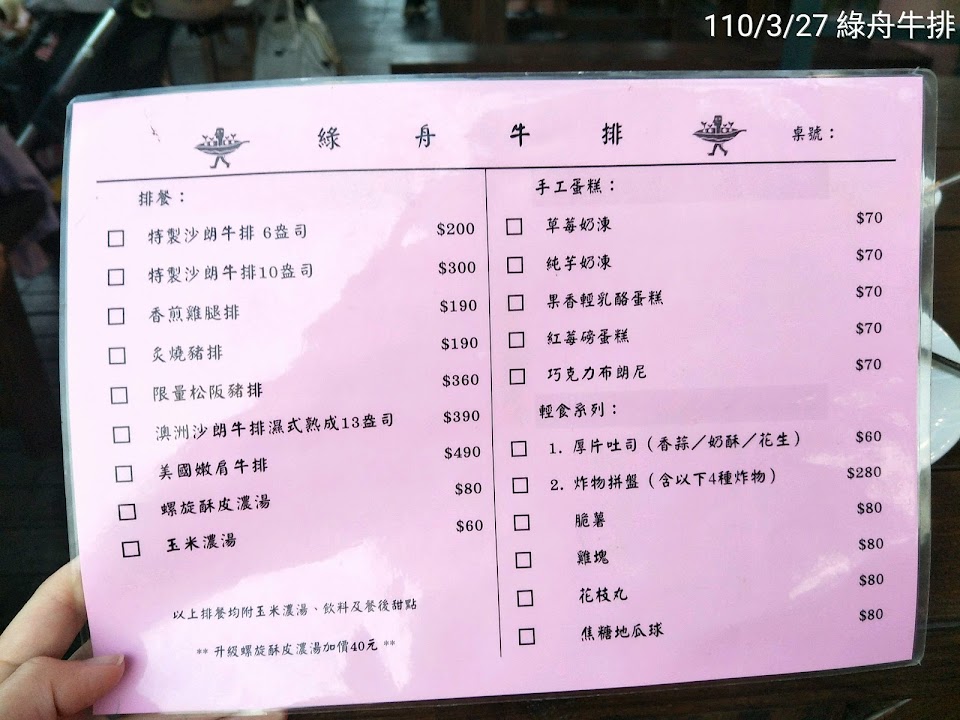 110/3/27 綠舟牛排
綠舟牛排
桌號：
排餐：
特製沙朗牛排 6盎司 $200
特製沙朗牛排10盎司 $300
香煎雞腿排 $190
炙燒豬排 $190
限量松阪豬排 $360
澳洲沙朗牛排濕式熟成13盎司 $390
美國嫩肩牛排 $490
螺旋酥皮濃湯 $80
玉米濃湯 $60
以上排餐均附玉米濃湯、飲料及餐後甜點
** 升級螺旋酥皮濃湯加價40元 **
手工蛋糕：
草莓奶凍 $70
純芋奶凍 $70
果香輕乳酪蛋糕 $70
紅莓磅蛋糕 $70
巧克力布朗尼 $70
輕食系列：
1. 厚片吐司（香蒜／奶酥／花生） $60
2. 炸物拼盤（含以下4種炸物） $280
脆薯 $80
雞塊 $80
花枝丸 $80
焦糖地瓜球 $80